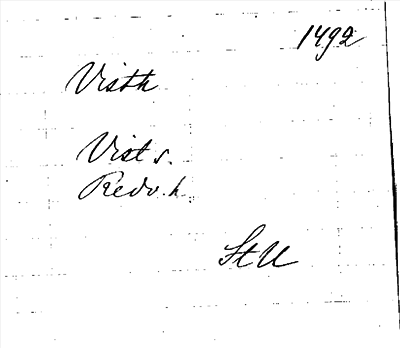 1492
Visth
Vist s.
Redv. h.
St U